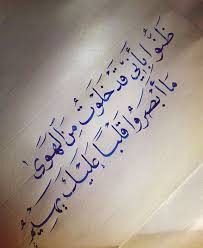 ظَنُّوا بِأَنِّي قَدْ خَلَوْتُ مِنَ الْهَوَىٰ
مَا أَبْصَرُوا قَلْبًا عَلَيْكَ يَهِيمُ